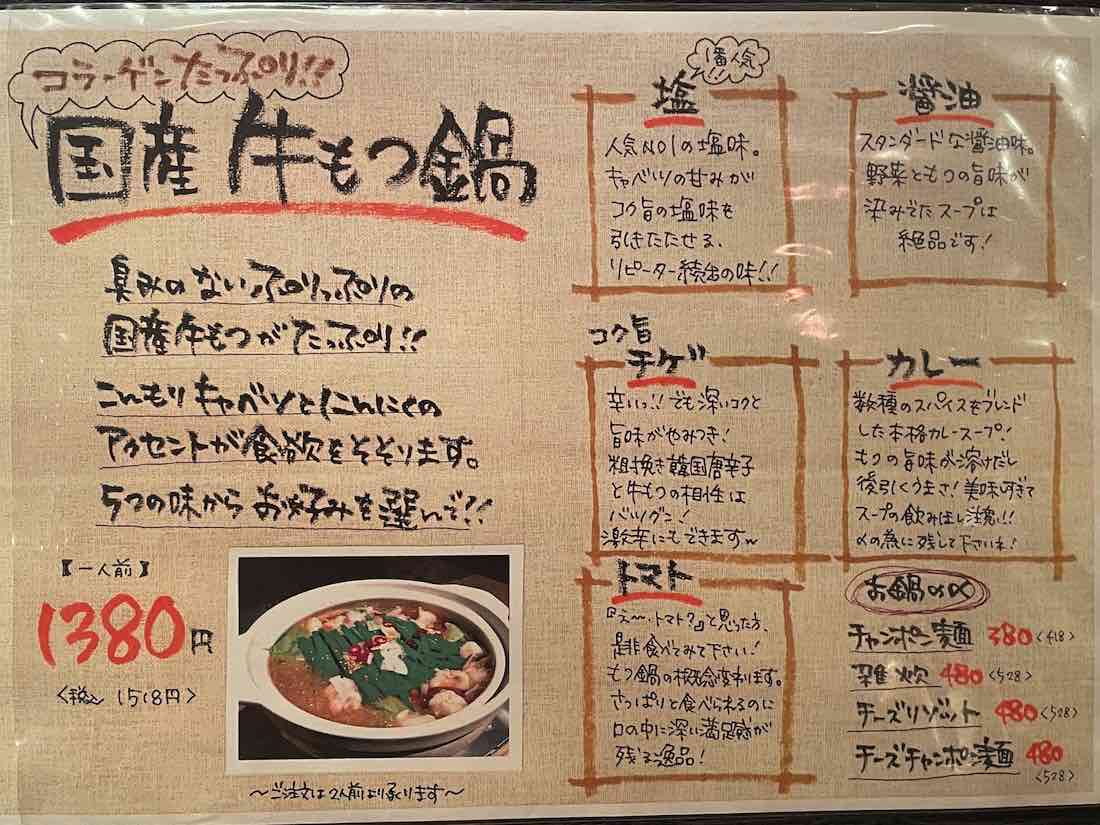 コラーゲンたっぷり!!
国産牛もつ鍋
臭みのないぷりっぷりの
国産牛もつがたっぷり!!
こんもりキャベツとにんにくの
アクセントが食欲をそそります。
5つの味からお好みを選んで!!
【一人前】
1380円
<税込 1518円>
〜ご注文は2人前より承ります〜
1番人気!!
塩
人気NO1の塩味。
キャベツの甘みが
コク旨の塩味を
引きたたせる、
リピーター続出の味!!
醤油
スタンダードな醤油味。
野菜ともつの旨味が
染みでたスープは
絶品です!
コク旨
チゲ
辛いっ!!でも深いコクと
旨味がやみつき!
粗挽き韓国唐辛子
と牛もつの相性は
バツグン!
激辛にもできます〜
カレー
数種のスパイスをブレンド
した本格カレースープ!
もつの旨味が溶けだし
後引くうまさ!美味しすぎて
スープの飲みほし注意!!
〆の為に残して下さいね!
トマト
『え〜トマト?』と思った方、
是非食べてみて下さい!
もつ鍋の概念変わります。
さっぱりと食べられるのに
口の中に深い満足感が
残る逸品!
お鍋の〆
チャンポン麺 380<418>
雑炊 480<528>
チーズリゾット 480<528>
チーズチャンポン麺 480
<528>